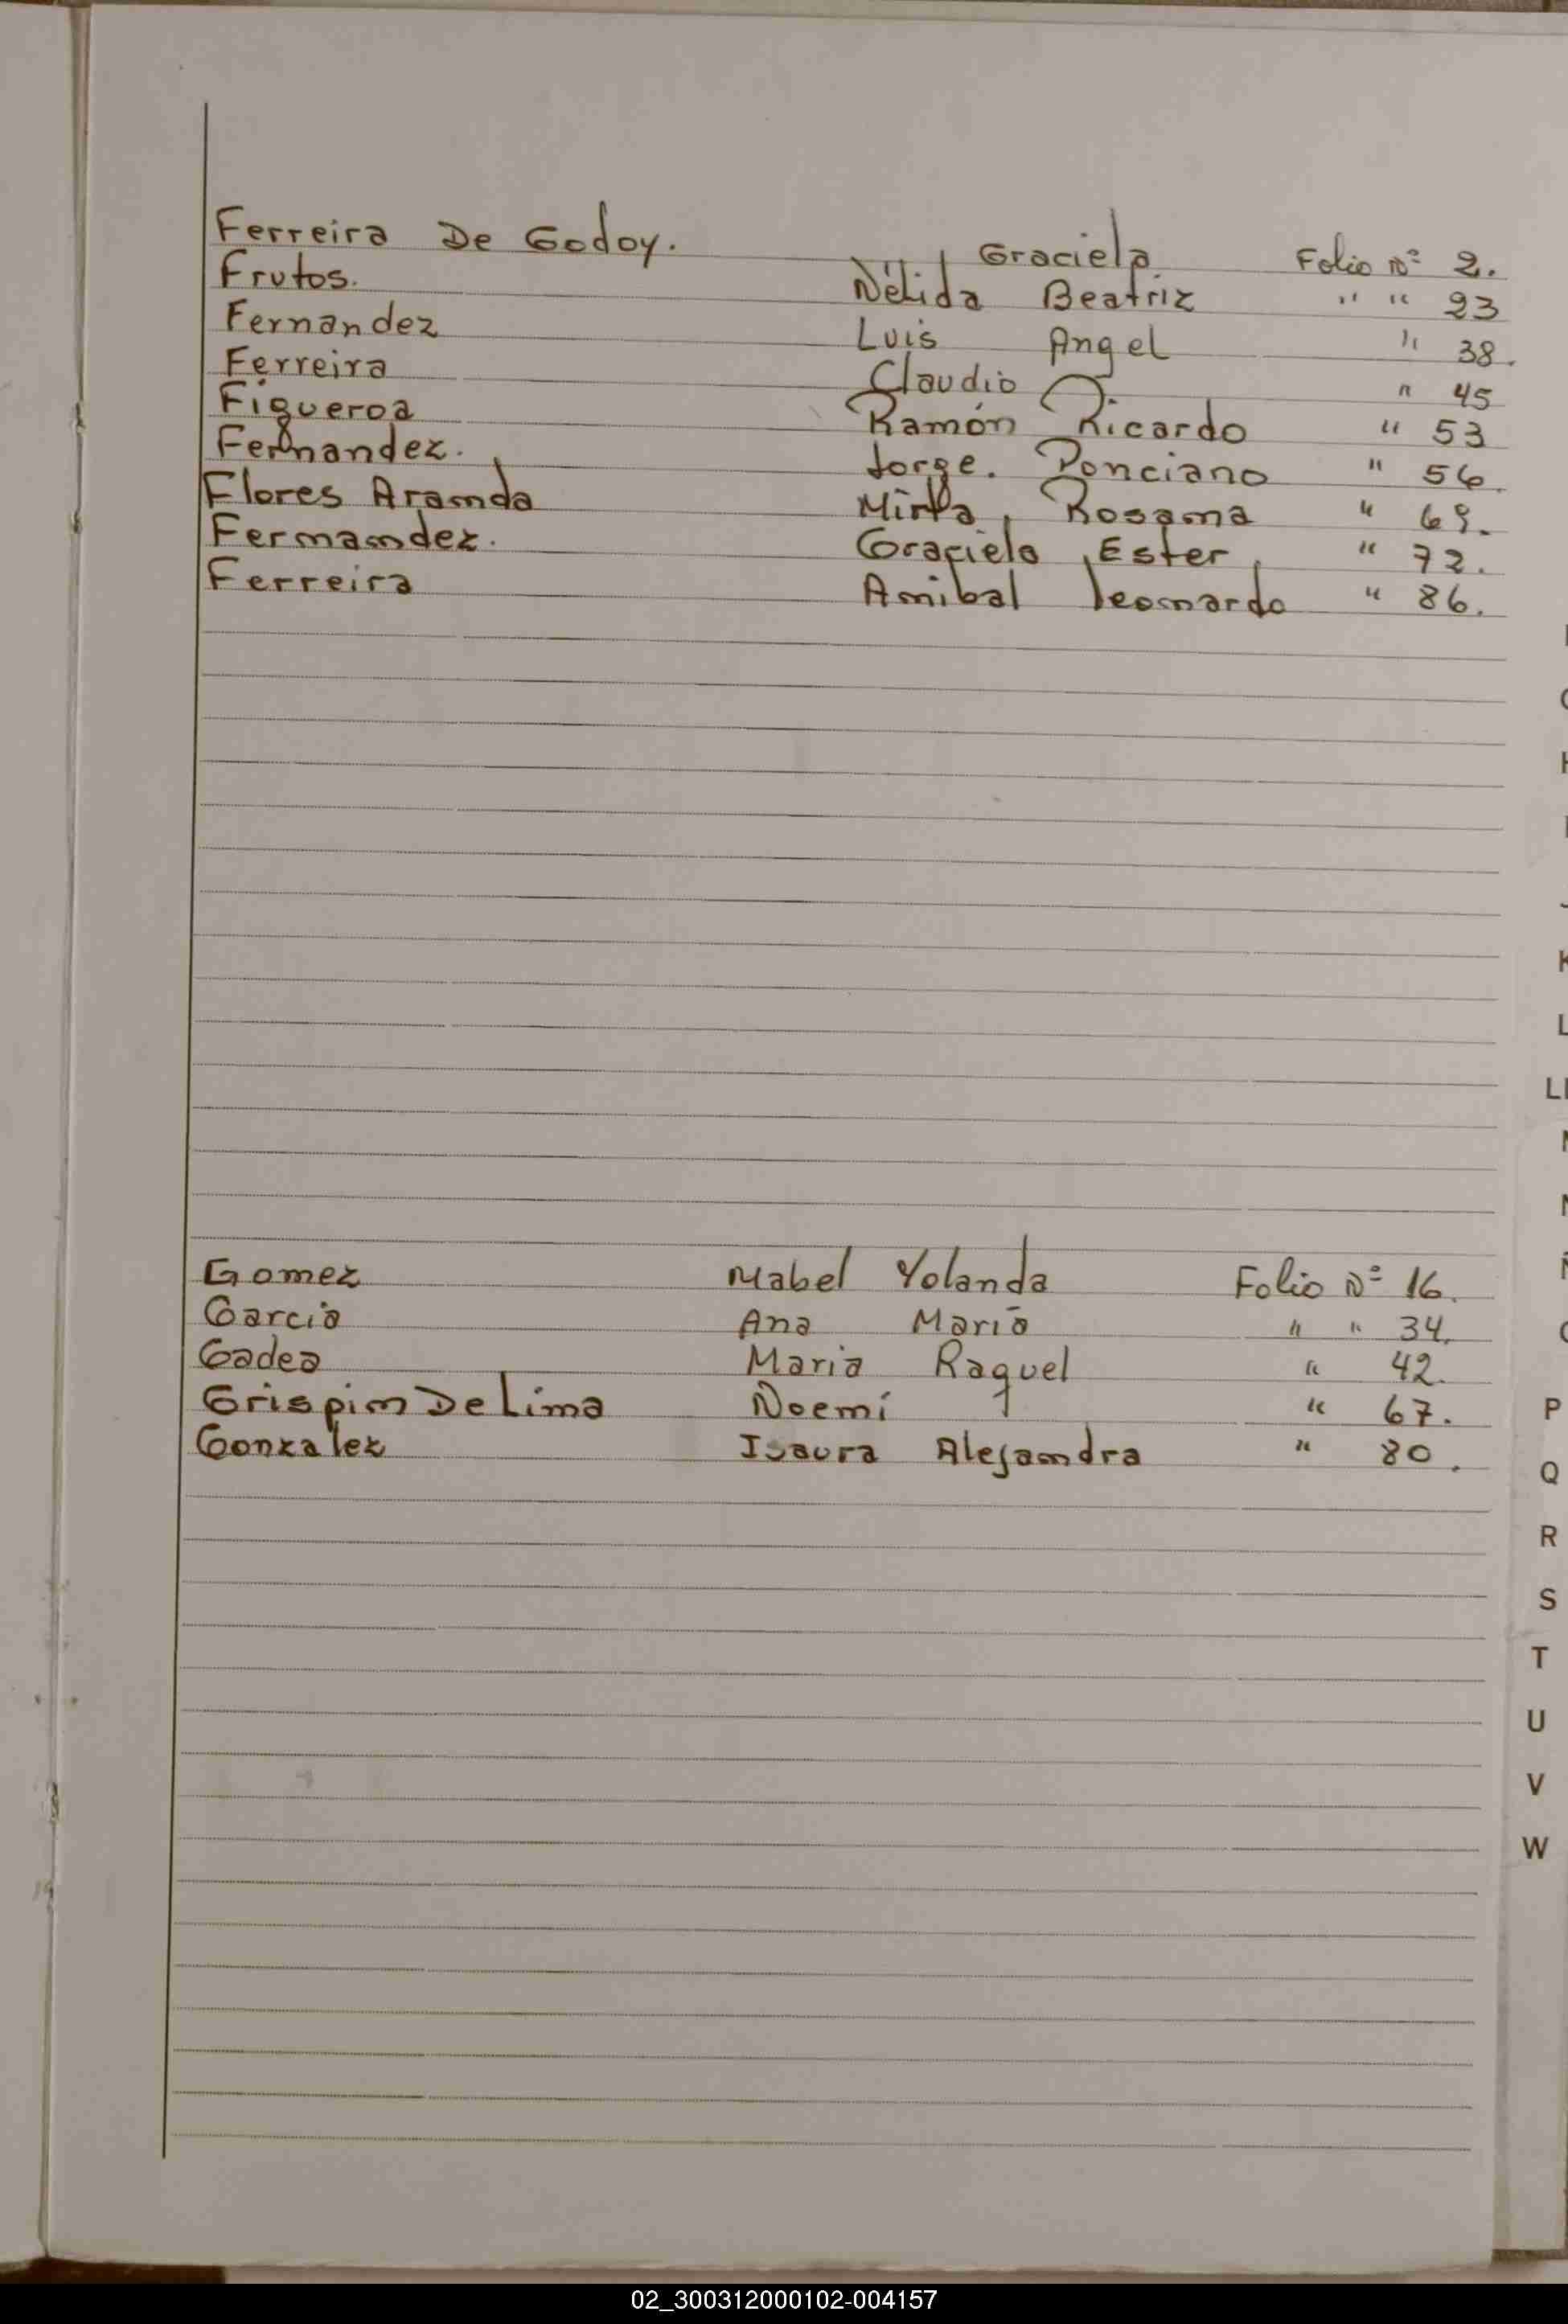 Ferreira De Godoy. Graciela Folio Nº 2.
Frutos. Nélida Beatriz " " 23
Fernandez Luis Angel " 38.
Ferreira Claudio " 45
Figueroa Ramón Ricardo " 53
Fernandez. Jorge. Ponciano " 56.
Flores Aranda Mirta Rosana " 69.
Fernandez. Graciela Ester " 72.
Ferreira Anibal Leonardo " 86.
Gomez Mabel Yolanda Folio Nº 16.
Garcia Ana Maria " " 34.
Gadea Maria Raquel " 42.
Grispin De Lima Noemí " 67.
Gonzalez Isaura Alejandra " 80.
K
L
P
Q
R
S
T
U
V
W
02_300312000102-004157